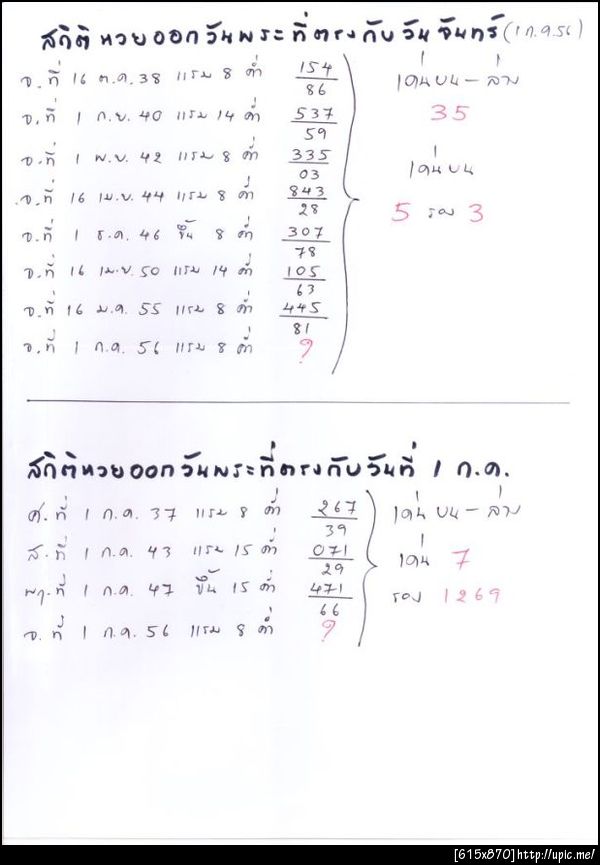 สถิติหวยออกวันพระที่ตรงกับวันจันทร์ (1 ก.ค.56)
จ.ที่ 16 ต.ค. 38 แรม 8 ค่ำ 154
86
จ.ที่ 1 ก.ย. 40 แรม 14 ค่ำ 537
59
จ.ที่ 1 พ.ย. 42 แรม 8 ค่ำ 335
03
จ.ที่ 16 เม.ย. 44 แรม 8 ค่ำ 843
28
จ.ที่ 1 ธ.ค. 46 ขึ้น 8 ค่ำ 307
78
จ.ที่ 16 เม.ย. 50 แรม 14 ค่ำ 105
63
จ.ที่ 16 ม.ค. 55 แรม 8 ค่ำ 445
81
จ.ที่ 1 ก.ค. 56 แรม 8 ค่ำ ?
เด่นบน - ล่าง
35
เด่นบน
5 รอง 3
สถิติหวยออกวันพระที่ตรงกับวันที่ 1 ก.ค.
ศ.ที่ 1 ก.ค. 37 แรม 8 ค่ำ 267
39
ส.ที่ 1 ก.ค. 43 แรม 15 ค่ำ 071
29
พฤ.ที่ 1 ก.ค. 47 ขึ้น 15 ค่ำ 471
66
จ.ที่ 1 ก.ค. 56 แรม 8 ค่ำ ?
เด่นบน - ล่าง
เด่น 7
รอง 1269
[615x870]http://upic.me/